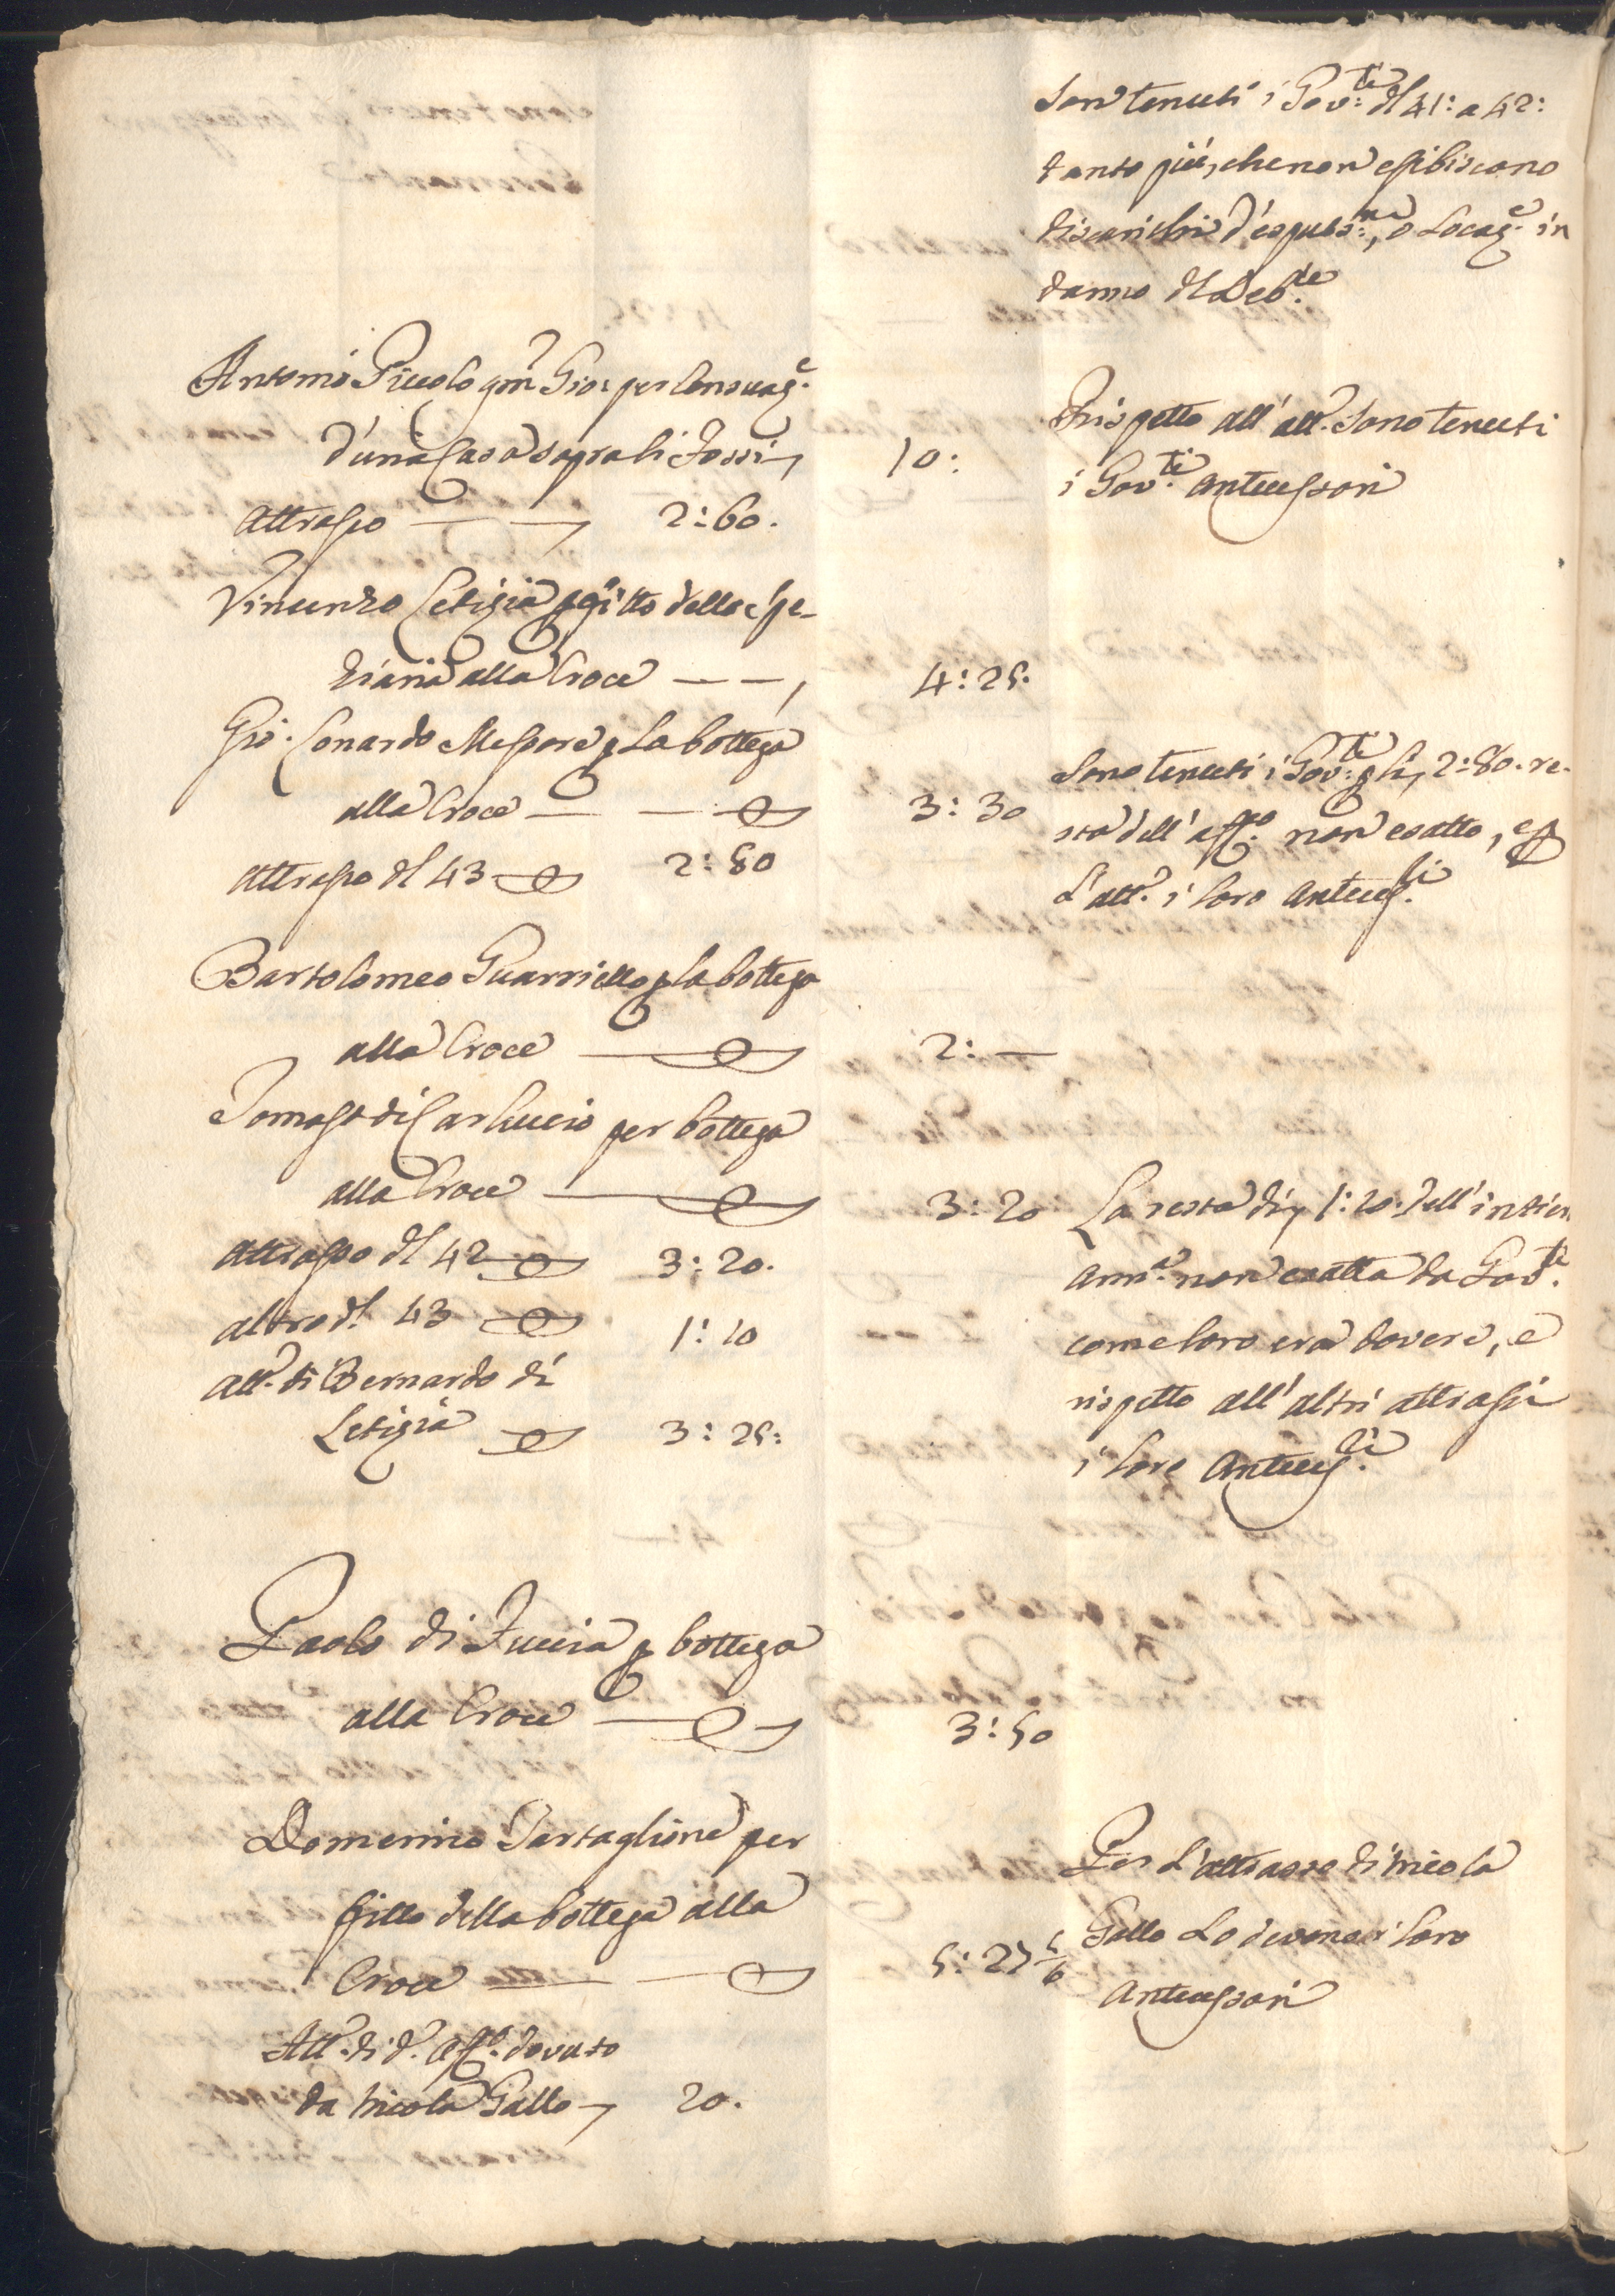 Son tenuti i Gov:ti dl 41: a 42:
tanto più, che non esibiscono
discarichi d'espuls:ni, o Locaz:e in
danno dl Deb:re
Antonio Piccolo qm Gio: per Censuaz:e
d'una Casa sopra li Fossi
10:
attrasso 2:60.
Rispetto all'att:o sono tenuti
i Gov:ti Antecessori
Vincenzo Letizia p fitto della spe-
ziaria alla Croce
4:25.
Gio: Lonardo Messore p la bottega
alla Croce
3:30
attrasso dl 43 2:80
Sono tenuti i Gov:ti p li 2:80. re-
sta dell'aff:o non esatto, e p
l'att:o i loro Antecess:ri
Bartolomeo Guarriello p la bottega
alla Croce
2:—
Tomaso di Carluccio per bottega
alla Croce
3:20
attrasso dl 42 3:20.
altro dl 43 1:10
att:o di Bernardo di
Letizia 3:25:
La resta di 1:20. dell'intier
ann:a non esatta da Gov:ti
come loro era dovere, e
rispetto all'altri attrassi
i loro Antecess:ri
Paolo di Fuccia p bottega
alla Croce
3:50
Domenico Tartaglione per
fitto della bottega alla
Croce
5:25 5/6
Att:o di d:o aff:o dovuto
da Nicola Gallo 20.
Per l'attrasso di Nicola
Gallo lo devono i loro
Antecessori